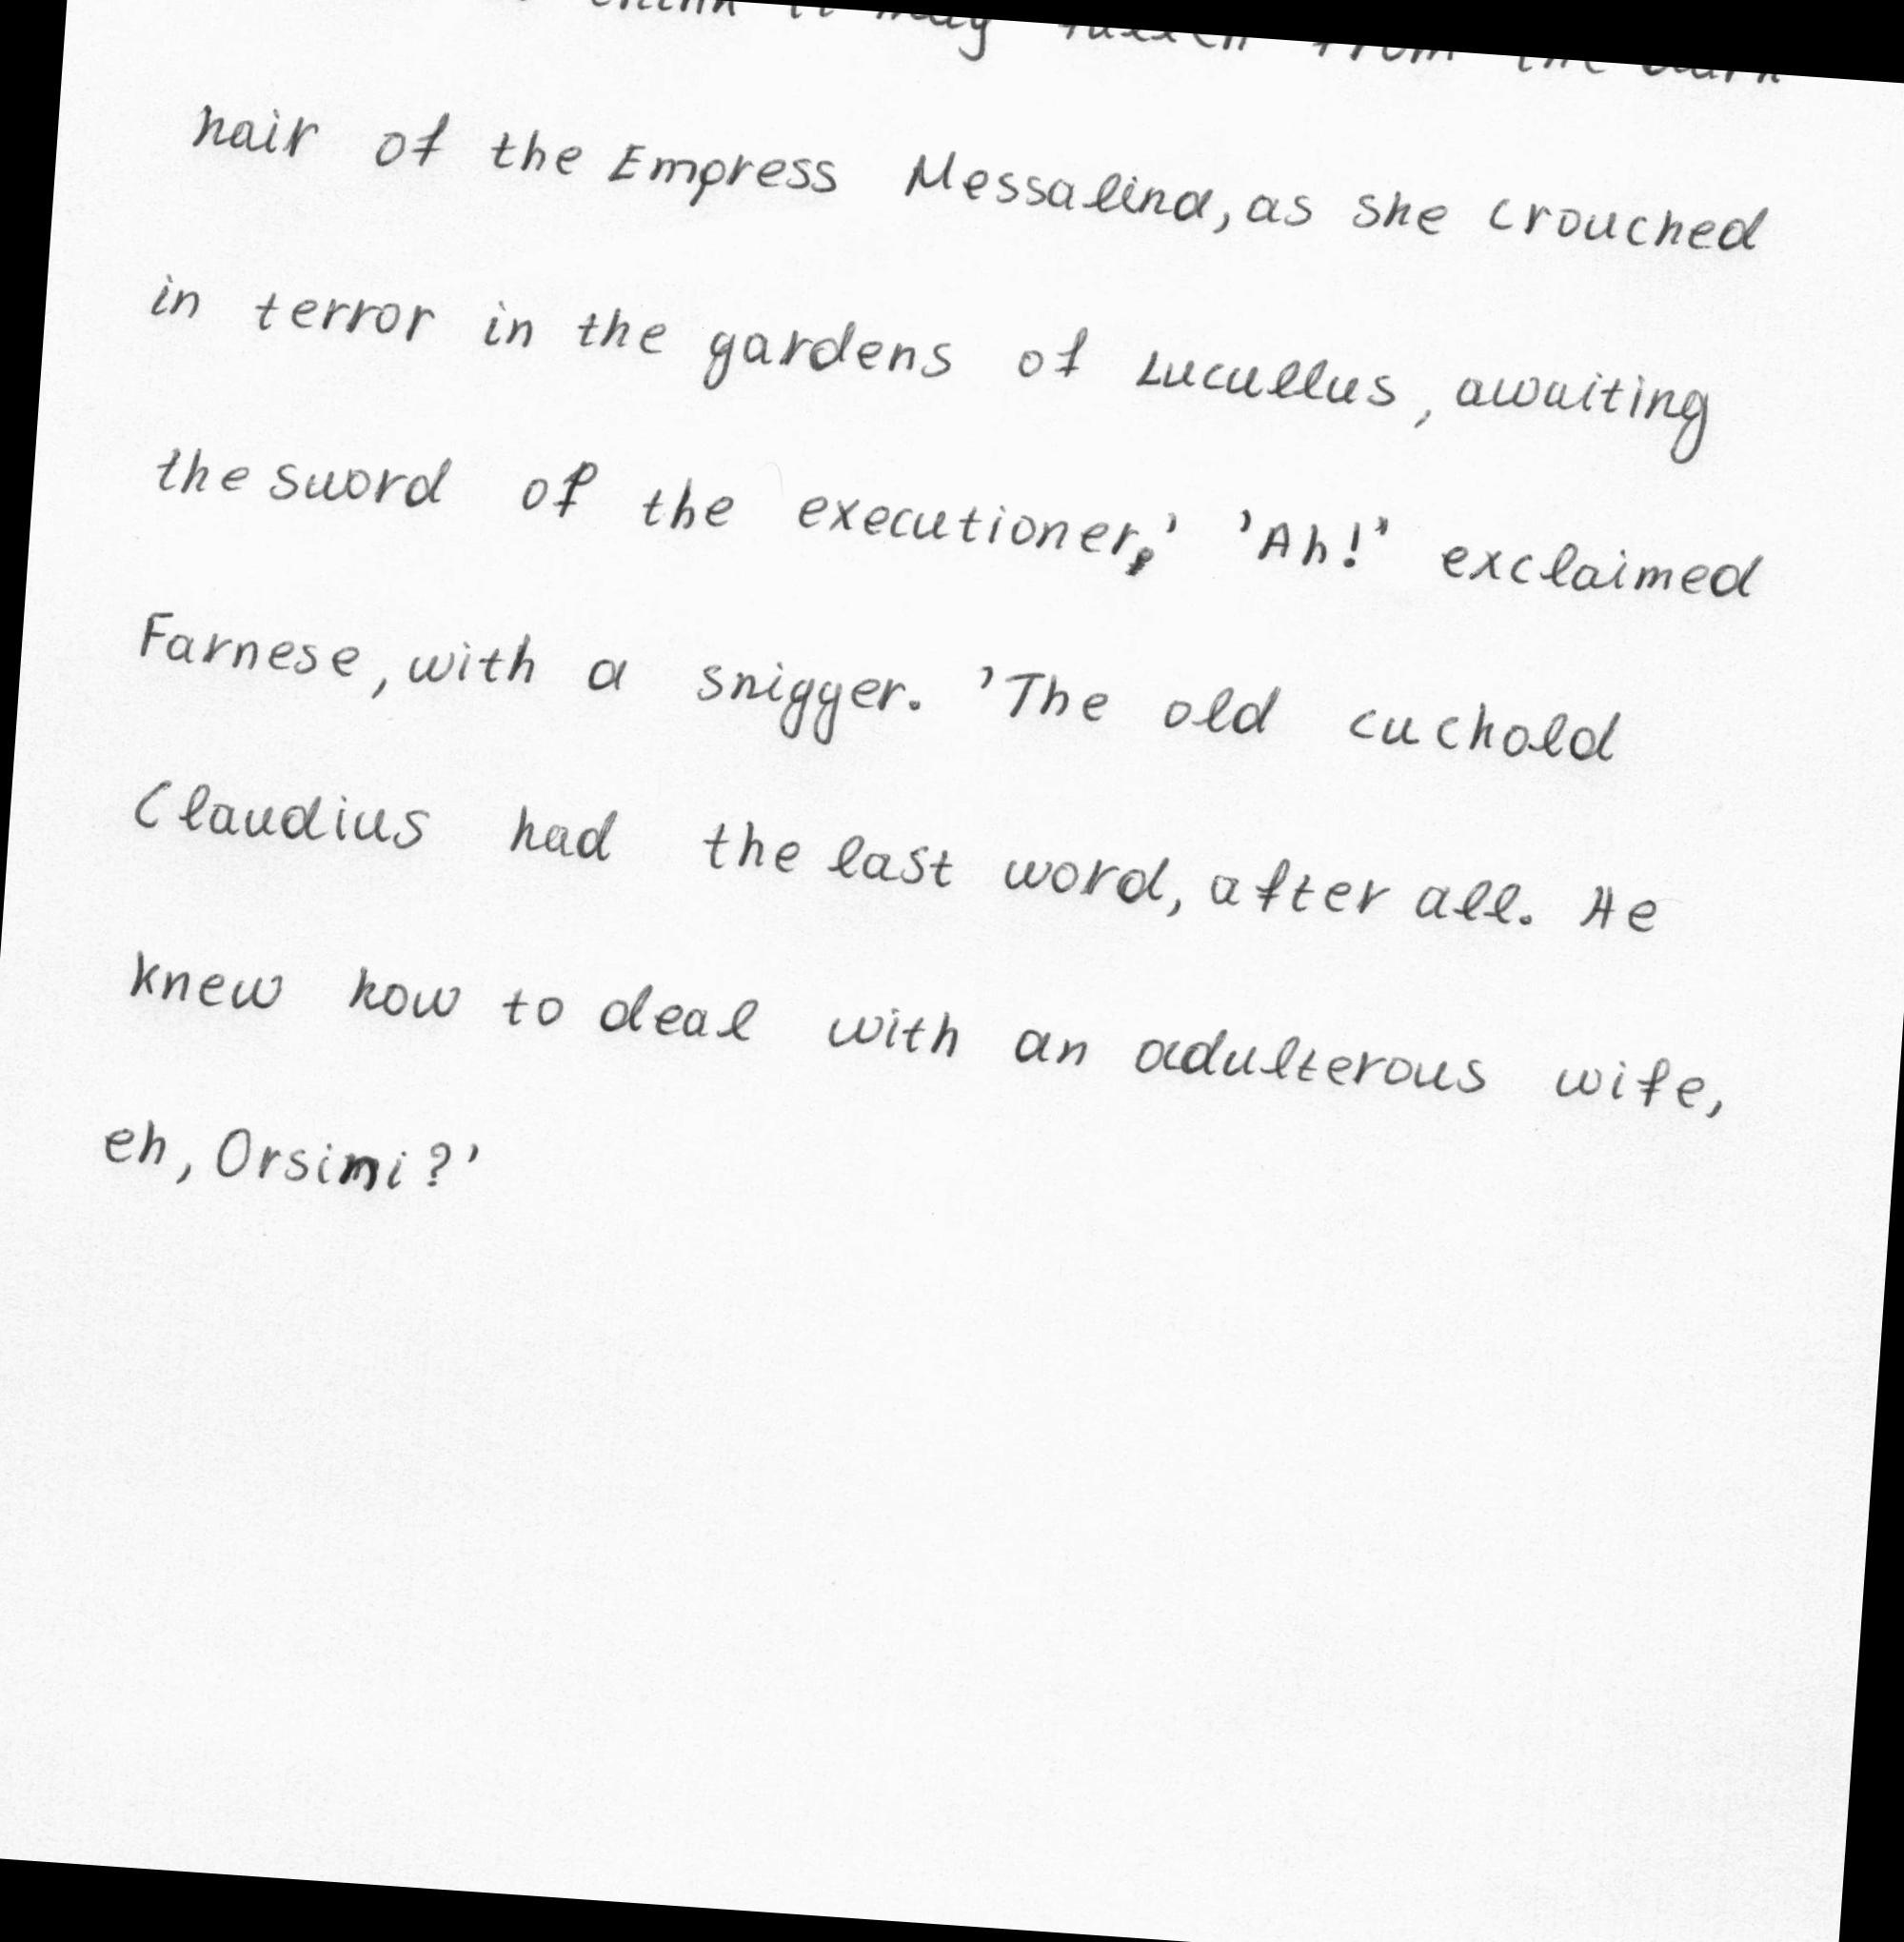 think it may fallen from the dark
hair of the Empress Messalina, as she crouched
in terror in the gardens of Lucullus, awaiting
the sword of the executioner,' 'Ah!' exclaimed
Farnese, with a snigger. 'The old cuckold
Claudius had the last word, after all. He
knew how to deal with an adulterous wife,
eh, Orsini?'